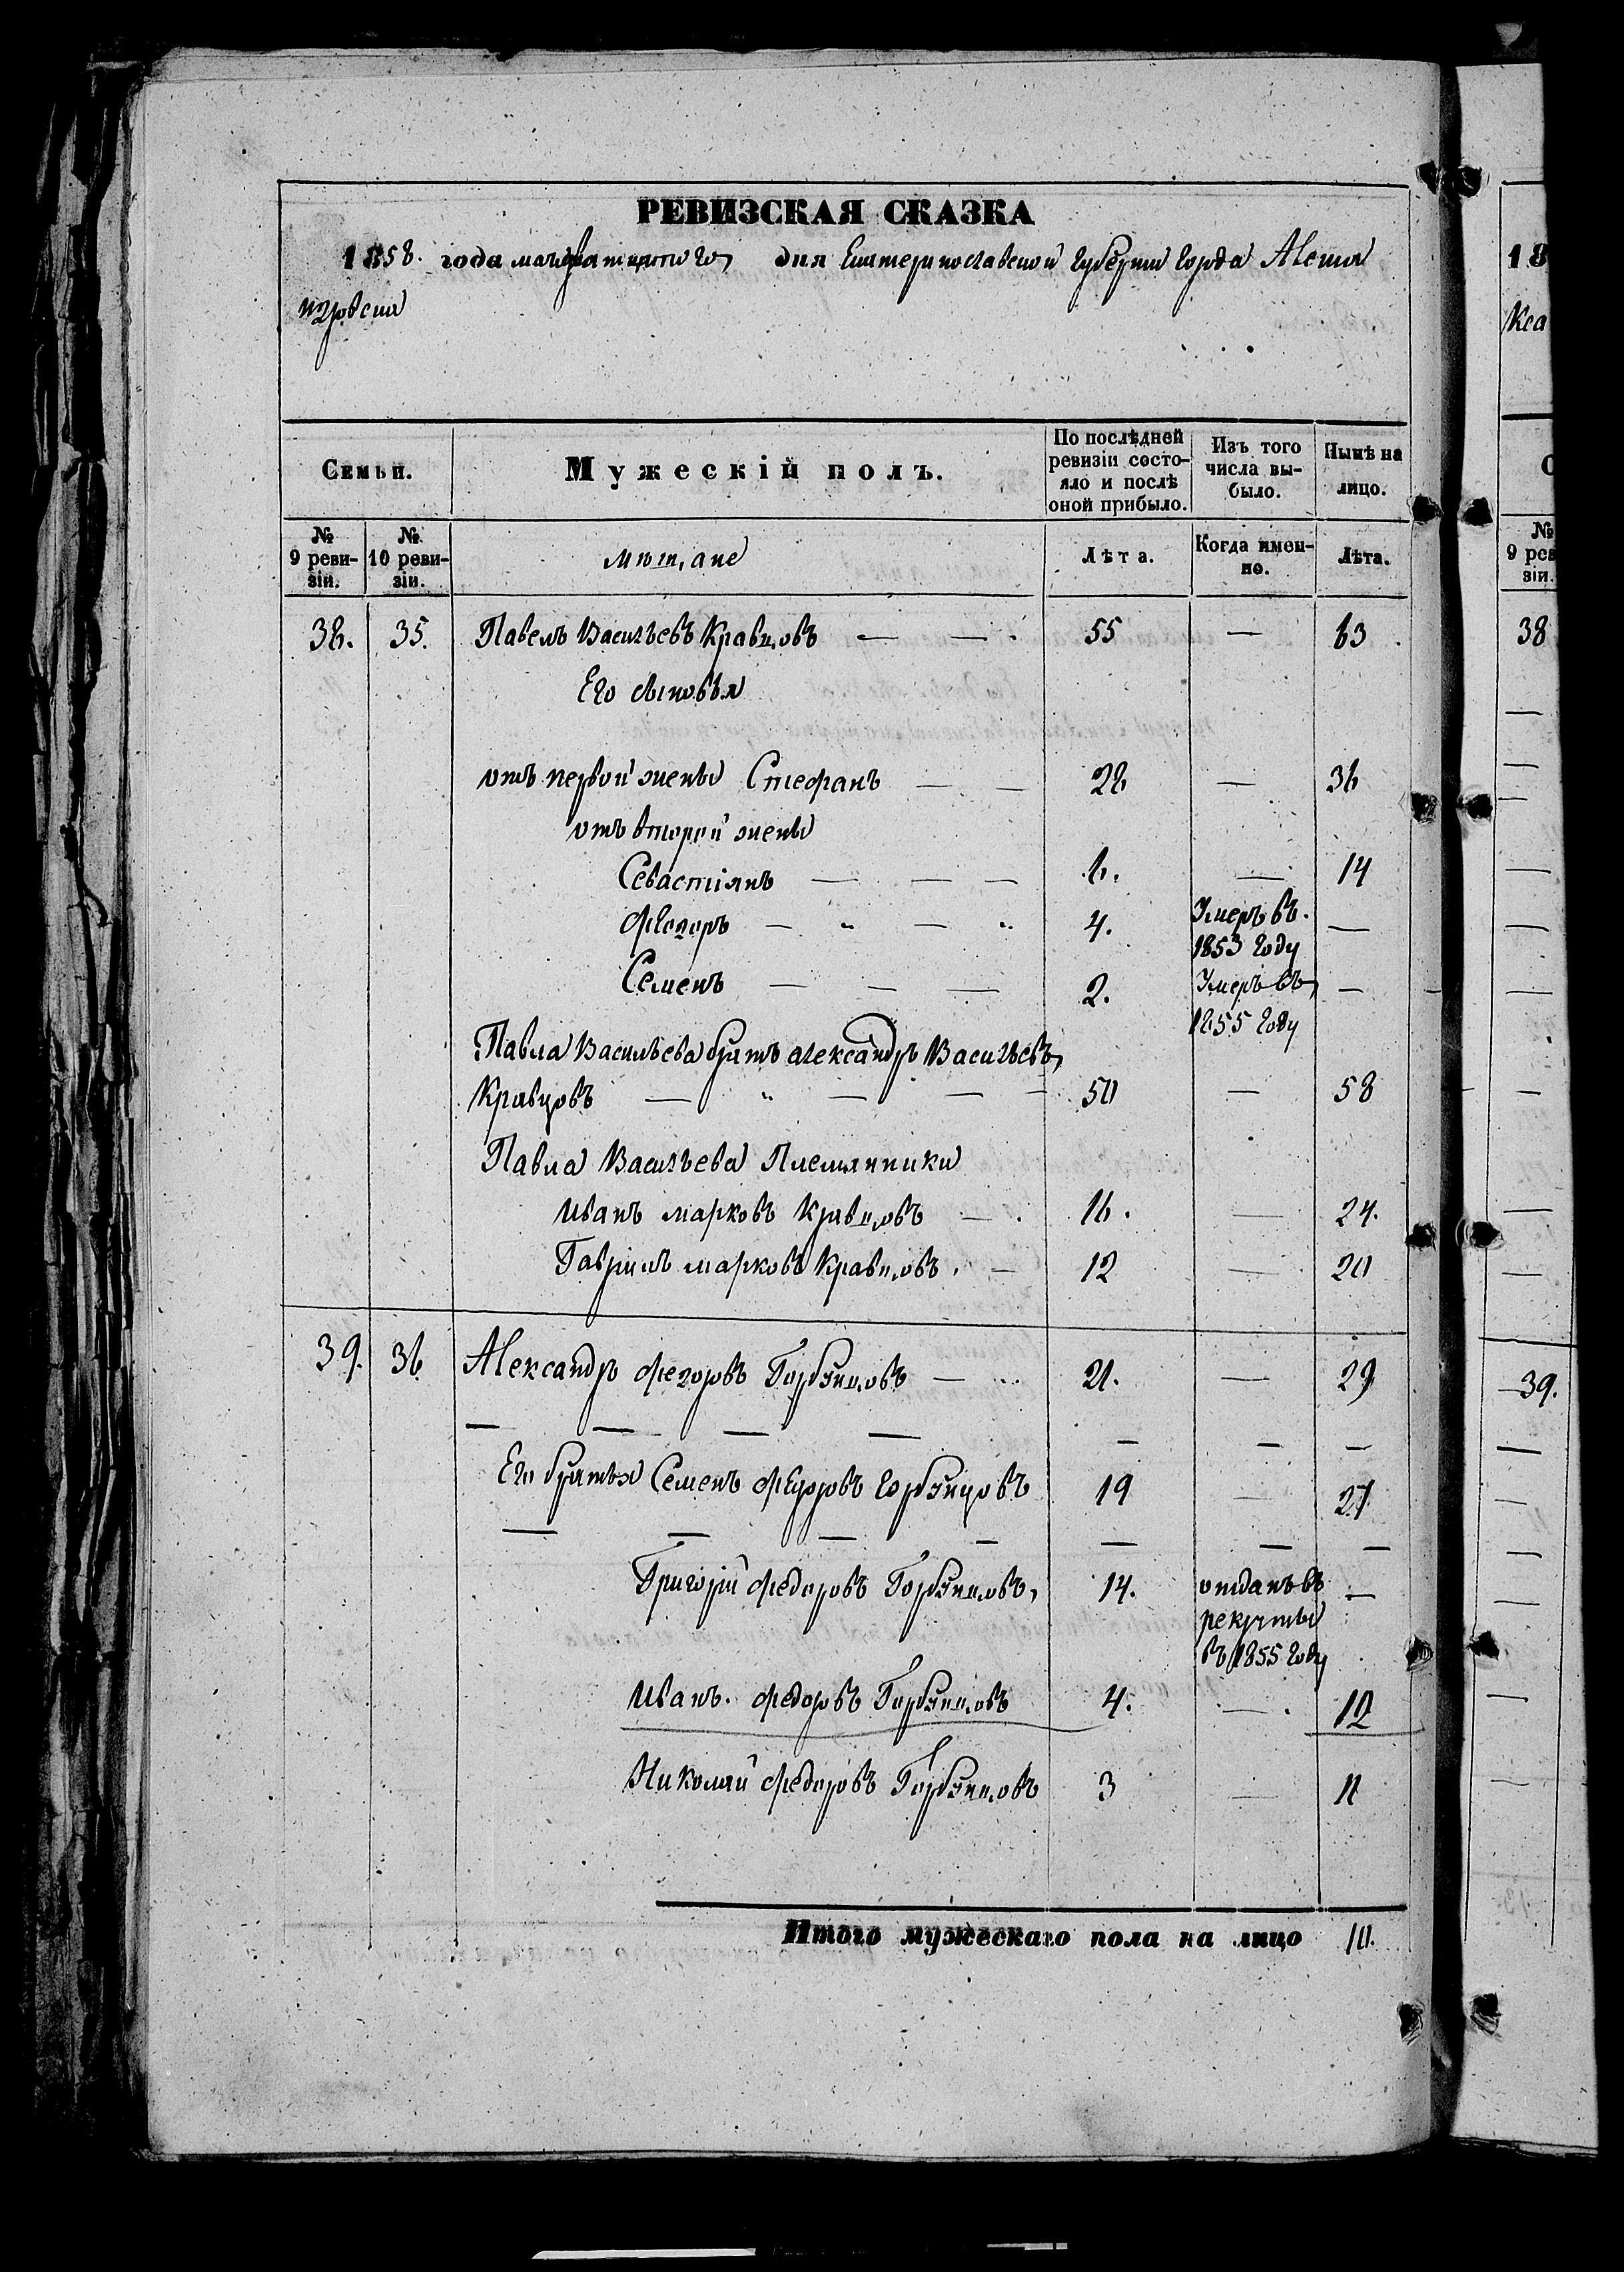 РЕВИЗСКАЯ СКАЗКА
1858. года мая двадцатого дня Екатеринославской Губернии города Алекса
ндровска
Семьи.
Мужескій полъ.
По послѣдней ревизіи состояло и послѣ оной прибыло.
Изъ того числа выбыло.
Нынѣ на лицо.
№ 9 ревизіи.
№ 10 ревизіи.
мѣщане
Лѣта.
Когда именно.
Лѣта.
38. 35. Павелъ Васильевъ Кравцовъ — — . 55 — 63
Его сыновья
отъ первой жены Стефанъ — — 28 — 36
отъ второй жены
Севастіянъ — — — 6. — 14
Федоръ — " — " 4. Умеръ въ 1853 году —
Семенъ — — — 2. Умеръ въ 1855 году —
Павла Васильева братъ александръ Васильевъ
Кравцовъ — " — — — 50 — 58
Павла Васильева Племянники
Иванъ марковъ Кравцовъ — . 16. — 24.
Гаврилъ марковъ Кравцовъ. — 12 — 20
39. 36 Александръ Федоровъ Горбунцовъ — 21. — 29
— — — — — — —
Его братья Семенъ Федоровъ Горбунцовъ 19 — 27
— — — — — — —
Григорій Федоровъ Горбунцовъ 14. отданъ въ рекруты въ 1855 году —
Иванъ. Федоровъ Горбунцовъ 4. — 12
Николай Федоровъ Горбунцовъ 3 — 11
Итого мужескаго пола на лицо 10.
18
Кса
С
№
9 рев
зіи.
38
39.